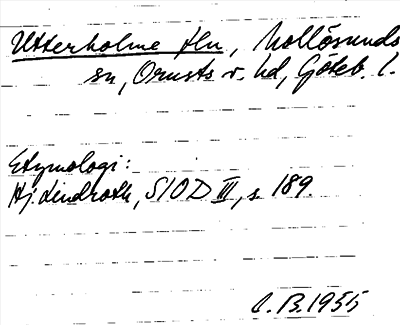 Utterholme fln, Mollösunds
sn, Orusts v. hd, Göteb. l.
Etymologi:
Hj. Lindroth, SIOD III, s. 189.
C. B. 1955